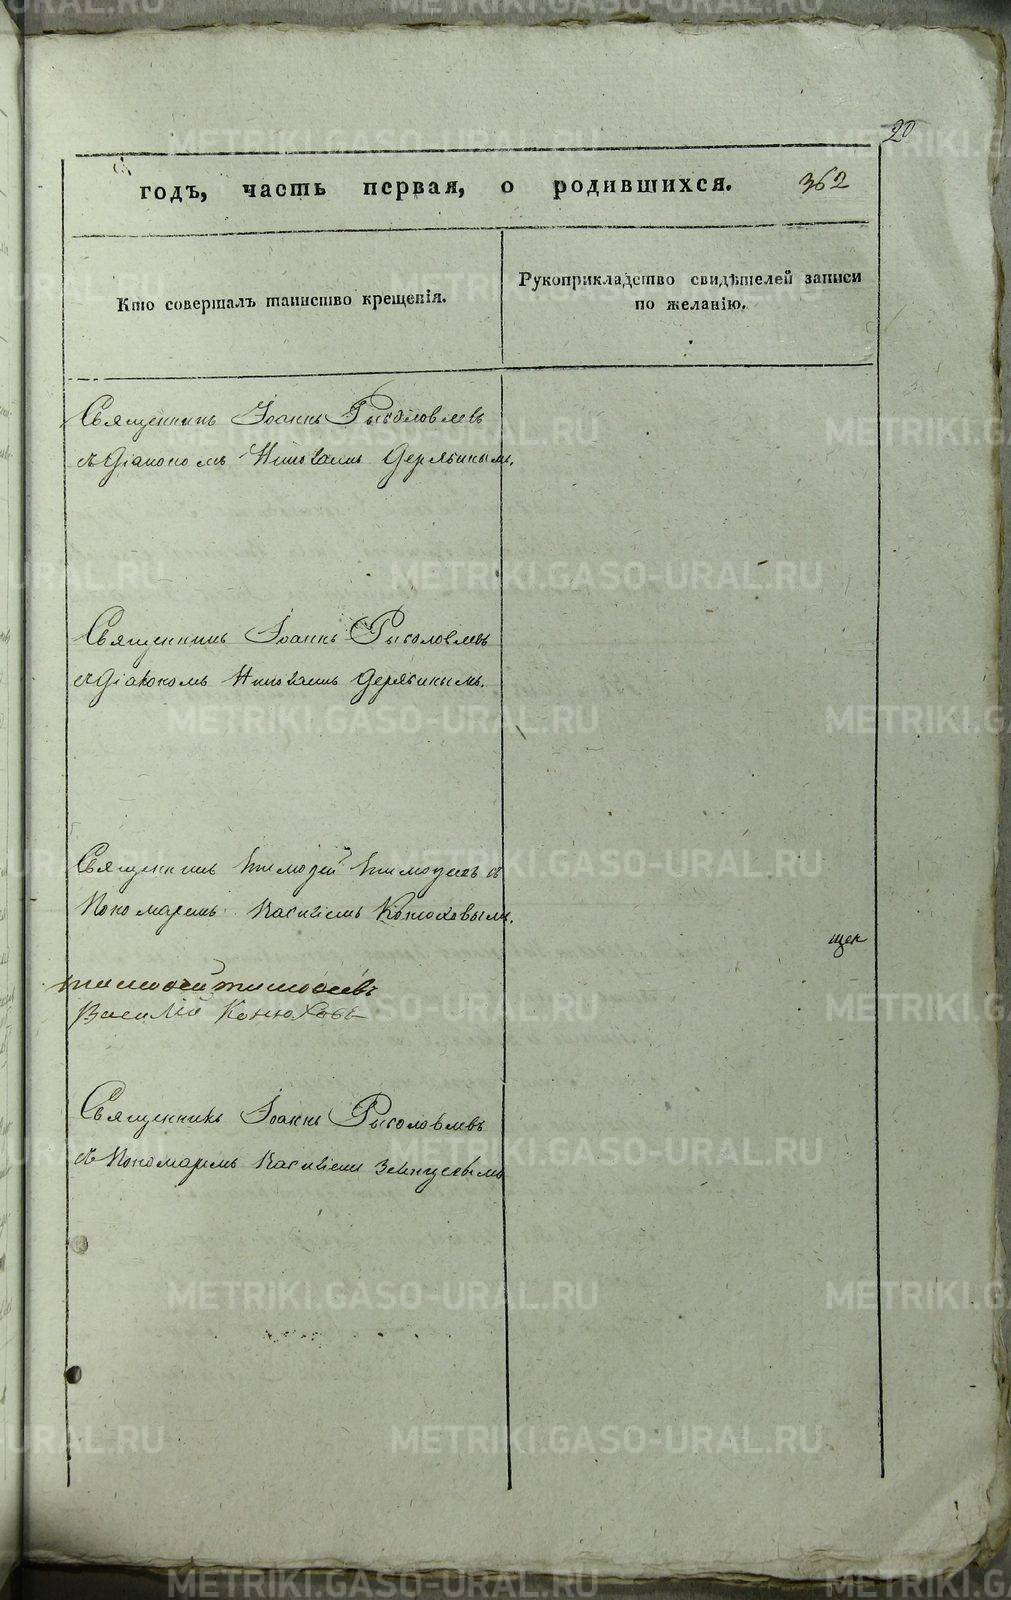 20
годъ, часть первая, о родившихся. 362
Кто совершалъ таинство крещенія.
Рукоприкладство свидѣтелей записи
по желанію.
Священникъ Іоаннъ Рыболовлевъ
съ Діакономъ Николаемъ Дерябинымъ.
Священникъ Іоаннъ Рыболовлевъ
съ Діакономъ Николаемъ Дерябинымъ.
Священникъ Тимофей Тимофеевъ съ
Пономаремъ Василіемъ Конюховымъ.
Тимофей Тимофеевъ
Василій Конюховъ
Священникъ Іоаннъ Рыболовлевъ
съ Пономаремъ Василіемъ
щен
METRIKI.GASO-URAL.RU